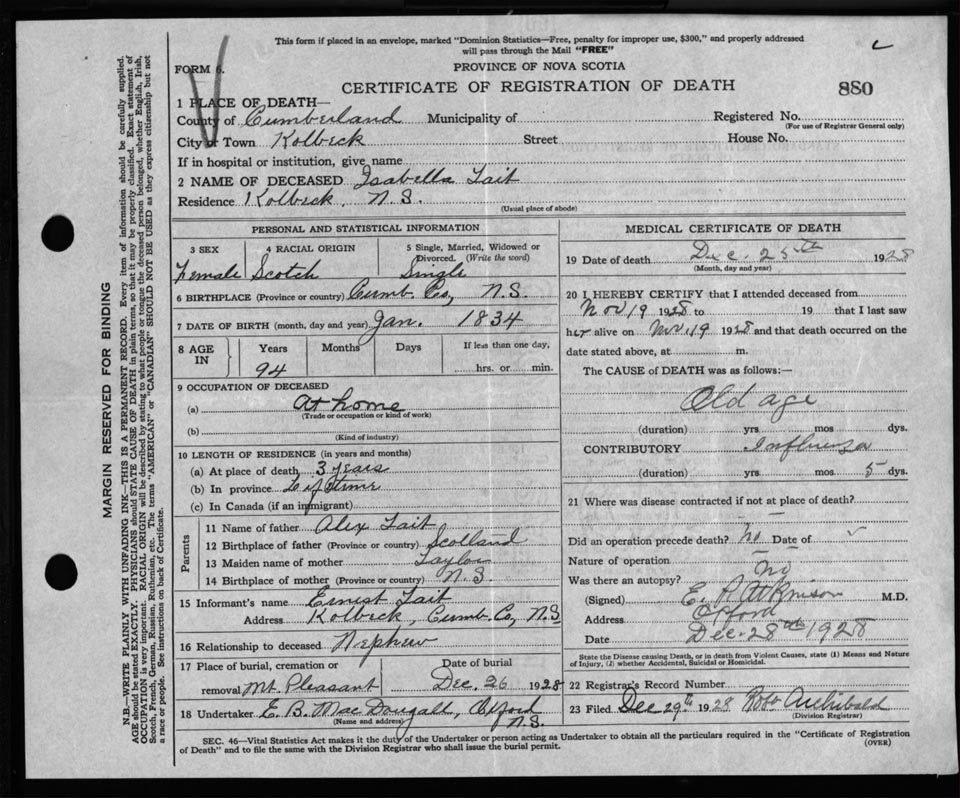 This form if placed in an envelope, marked "Dominion Statistics—Free, penalty for improper use, $300," and properly addressed
will pass through the Mail "FREE"
FORM 6.
PROVINCE OF NOVA SCOTIA
CERTIFICATE OF REGISTRATION OF DEATH
880
1 PLACE OF DEATH—
County of Cumberland Municipality of Registered No.
(For use of Registrar General only)
City or Town Kolbeck Street House No.
If in hospital or institution, give name
2 NAME OF DECEASED Isabella Tait
Residence Kolbeck, N.S.
(Usual place of abode)
PERSONAL AND STATISTICAL INFORMATION
3 SEX 4 RACIAL ORIGIN 5 Single, Married, Widowed or
Divorced. (Write the word)
Female Scotch Single
6 BIRTHPLACE (Province or country) Cumb. Co, N.S.
7 DATE OF BIRTH (month, day and year) Jan. 1834
8 AGE IN Years Months Days If less than one day,
94 hrs. or min.
9 OCCUPATION OF DECEASED
(a) At home
(Trade or occupation or kind of work)
(b)
(Kind of industry)
10 LENGTH OF RESIDENCE (in years and months)
(a) At place of death 3 years
(b) In province Lifetime
(c) In Canada (if an immigrant)
Parents
11 Name of father Alex Tait
12 Birthplace of father (Province or country) Scotland
13 Maiden name of mother Taylor
14 Birthplace of mother (Province or country) N.S.
15 Informant's name Ernest Tait
Address Kolbeck, Cumb. Co, N.S
16 Relationship to deceased Nephew
17 Place of burial, cremation or Date of burial
removal Mt. Pleasant Dec. 26 1928
18 Undertaker E. B. MacDougall, Oxford
(Name and address) N.S.
MEDICAL CERTIFICATE OF DEATH
19 Date of death Dec. 25th 1928
(Month, day and year)
20 I HEREBY CERTIFY that I attended deceased from
Nov 19 1928 to 19 that I last saw
her alive on Nov. 19 1928 and that death occurred on the
date stated above, at m.
The CAUSE of DEATH was as follows:—
Old age
(duration) yrs mos dys.
CONTRIBUTORY Influenza
(duration) yrs mos 5 dys.
21 Where was disease contracted if not at place of death?
Did an operation precede death? no Date of
Nature of operation
Was there an autopsy? no
(Signed) E. R. Atkinson M.D.
Address Oxford
Date Dec. 28th 1928
State the Disease causing Death, or in death from Violent Causes, state (1) Means and Nature
of Injury, (2) whether Accidental, Suicidal or Homicidal.
22 Registrar's Record Number
23 Filed Dec 29th 1928 Archibald
(Division Registrar)
SEC. 46—Vital Statistics Act makes it the duty of the Undertaker or person acting as Undertaker to obtain all the particulars required in the "Certificate of Registration
of Death" and to file the same with the Division Registrar who shall issue the burial permit. (OVER)
MARGIN RESERVED FOR BINDING
N.B.—WRITE PLAINLY WITH UNFADING INK—THIS IS A PERMANENT RECORD. Every item of information should be carefully supplied.
AGE should be stated EXACTLY. PHYSICIANS should STATE CAUSE OF DEATH in plain terms, so that it may be properly classified. Exact statement of
OCCUPATION is very important. RACIAL ORIGIN will be described by stating to what people or tongue the deceased person belonged, whether English, Irish,
Scotch, French, German, Russian, Ruthenian, etc. The terms "AMERICAN" or "CANADIAN" SHOULD NOT BE USED as they express citizenship but not
a race or people. See instructions on back of Certificate.